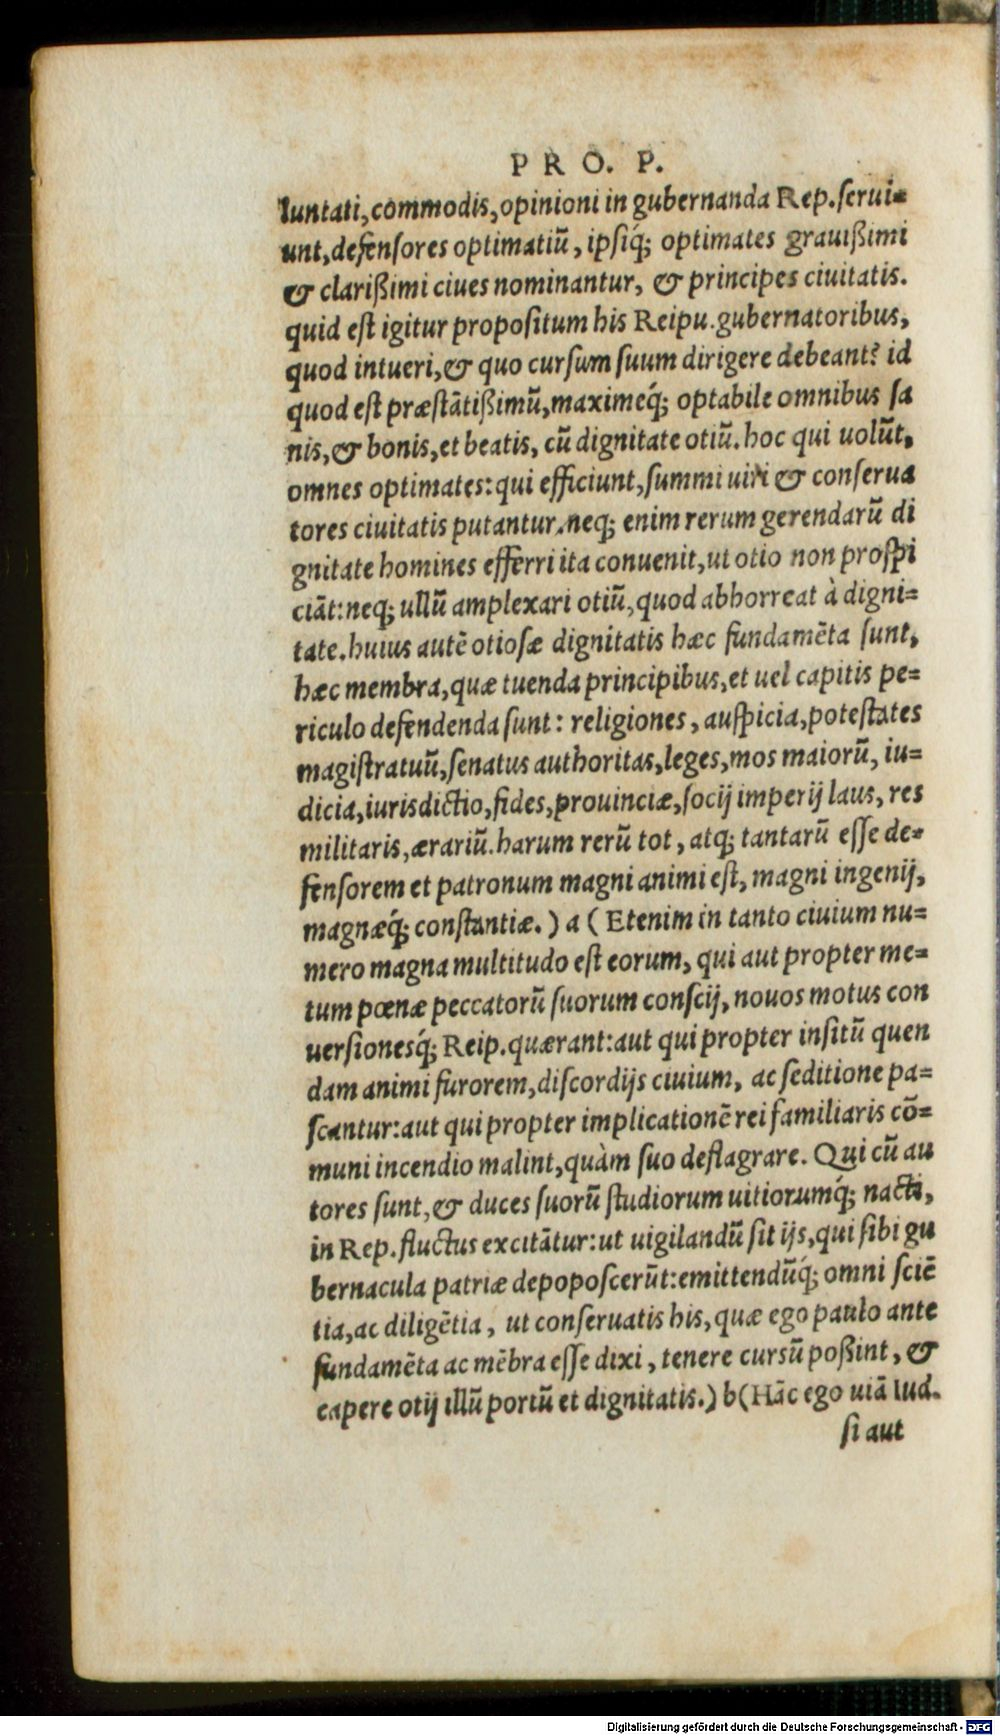 PRO. P.
luntati, commodis, opinioni in gubernanda Rep. ſerui=
unt, defenſores optimatiũ, ipſiq́; optimates grauißimi
& clarißimi ciues nominantur, & principes ciuitatis.
quid eſt igitur propoſitum his Reipu. gubernatoribus,
quod intueri, & quo curſum ſuum dirigere debeant? id
quod eſt præſtãtißimũ, maximeq́; optabile omnibus ſa
nis, & bonis, et beatis, cũ dignitate otiũ. hoc qui uolũt,
omnes optimates: qui efficiunt, ſummi uiri & conſerua
tores ciuitatis putantur. neq; enim rerum gerendarũ di
gnitate homines efferri ita conuenit, ut otio non proſpi
ciãt: neq; ullũ amplexari otiũ, quod abhorreat à digni=
tate. huius autẽ otioſæ dignitatis hæc fundamẽta ſunt,
hæc membra, quæ tuenda principibus, et uel capitis pe=
riculo defendenda ſunt: religiones, auſpicia, poteſtates
magiſtratuũ, ſenatus authoritas, leges, mos maiorũ, iu=
dicia, iurisdictio, fides, prouinciæ, ſocij imperij laus, res
militaris, ærariũ. harum rerũ tot, atq; tantarũ eſſe de=
fenſorem et patronum magni animi eſt, magni ingenij,
magnæq́; conſtantiæ.) a (Etenim in tanto ciuium nu=
mero magna multitudo eſt eorum, qui aut propter me=
tum pœnæ peccatorũ ſuorum conſcij, nouos motus con
uerſionesq́; Reip. quærant: aut qui propter inſitũ quen
dam animi furorem, diſcordijs ciuium, ac ſeditione pa=
ſcantur: aut qui propter implicationẽ rei familiaris cõ=
muni incendio malint, quàm ſuo deflagrare. Qui cũ au
tores ſunt, & duces ſuorũ ſtudiorum uitiorumq́; nacti,
in Rep. fluctus excitãtur: ut uigilandũ ſit ijs, qui ſibi gu
bernacula patriæ depopoſcerũt: emittendũq́; omni ſciẽ
tia, ac diligẽtia, ut conſeruatis his, quæ ego paulo ante
fundamẽta ac mẽbra eſſe dixi, tenere curſũ poßint, &
capere otij illũ portũ et dignitatis.) b (Hãc ego uiã Iud.
ſi aut
Digitalisierung gefördert durch die Deutsche Forschungsgemeinschaft - DFG